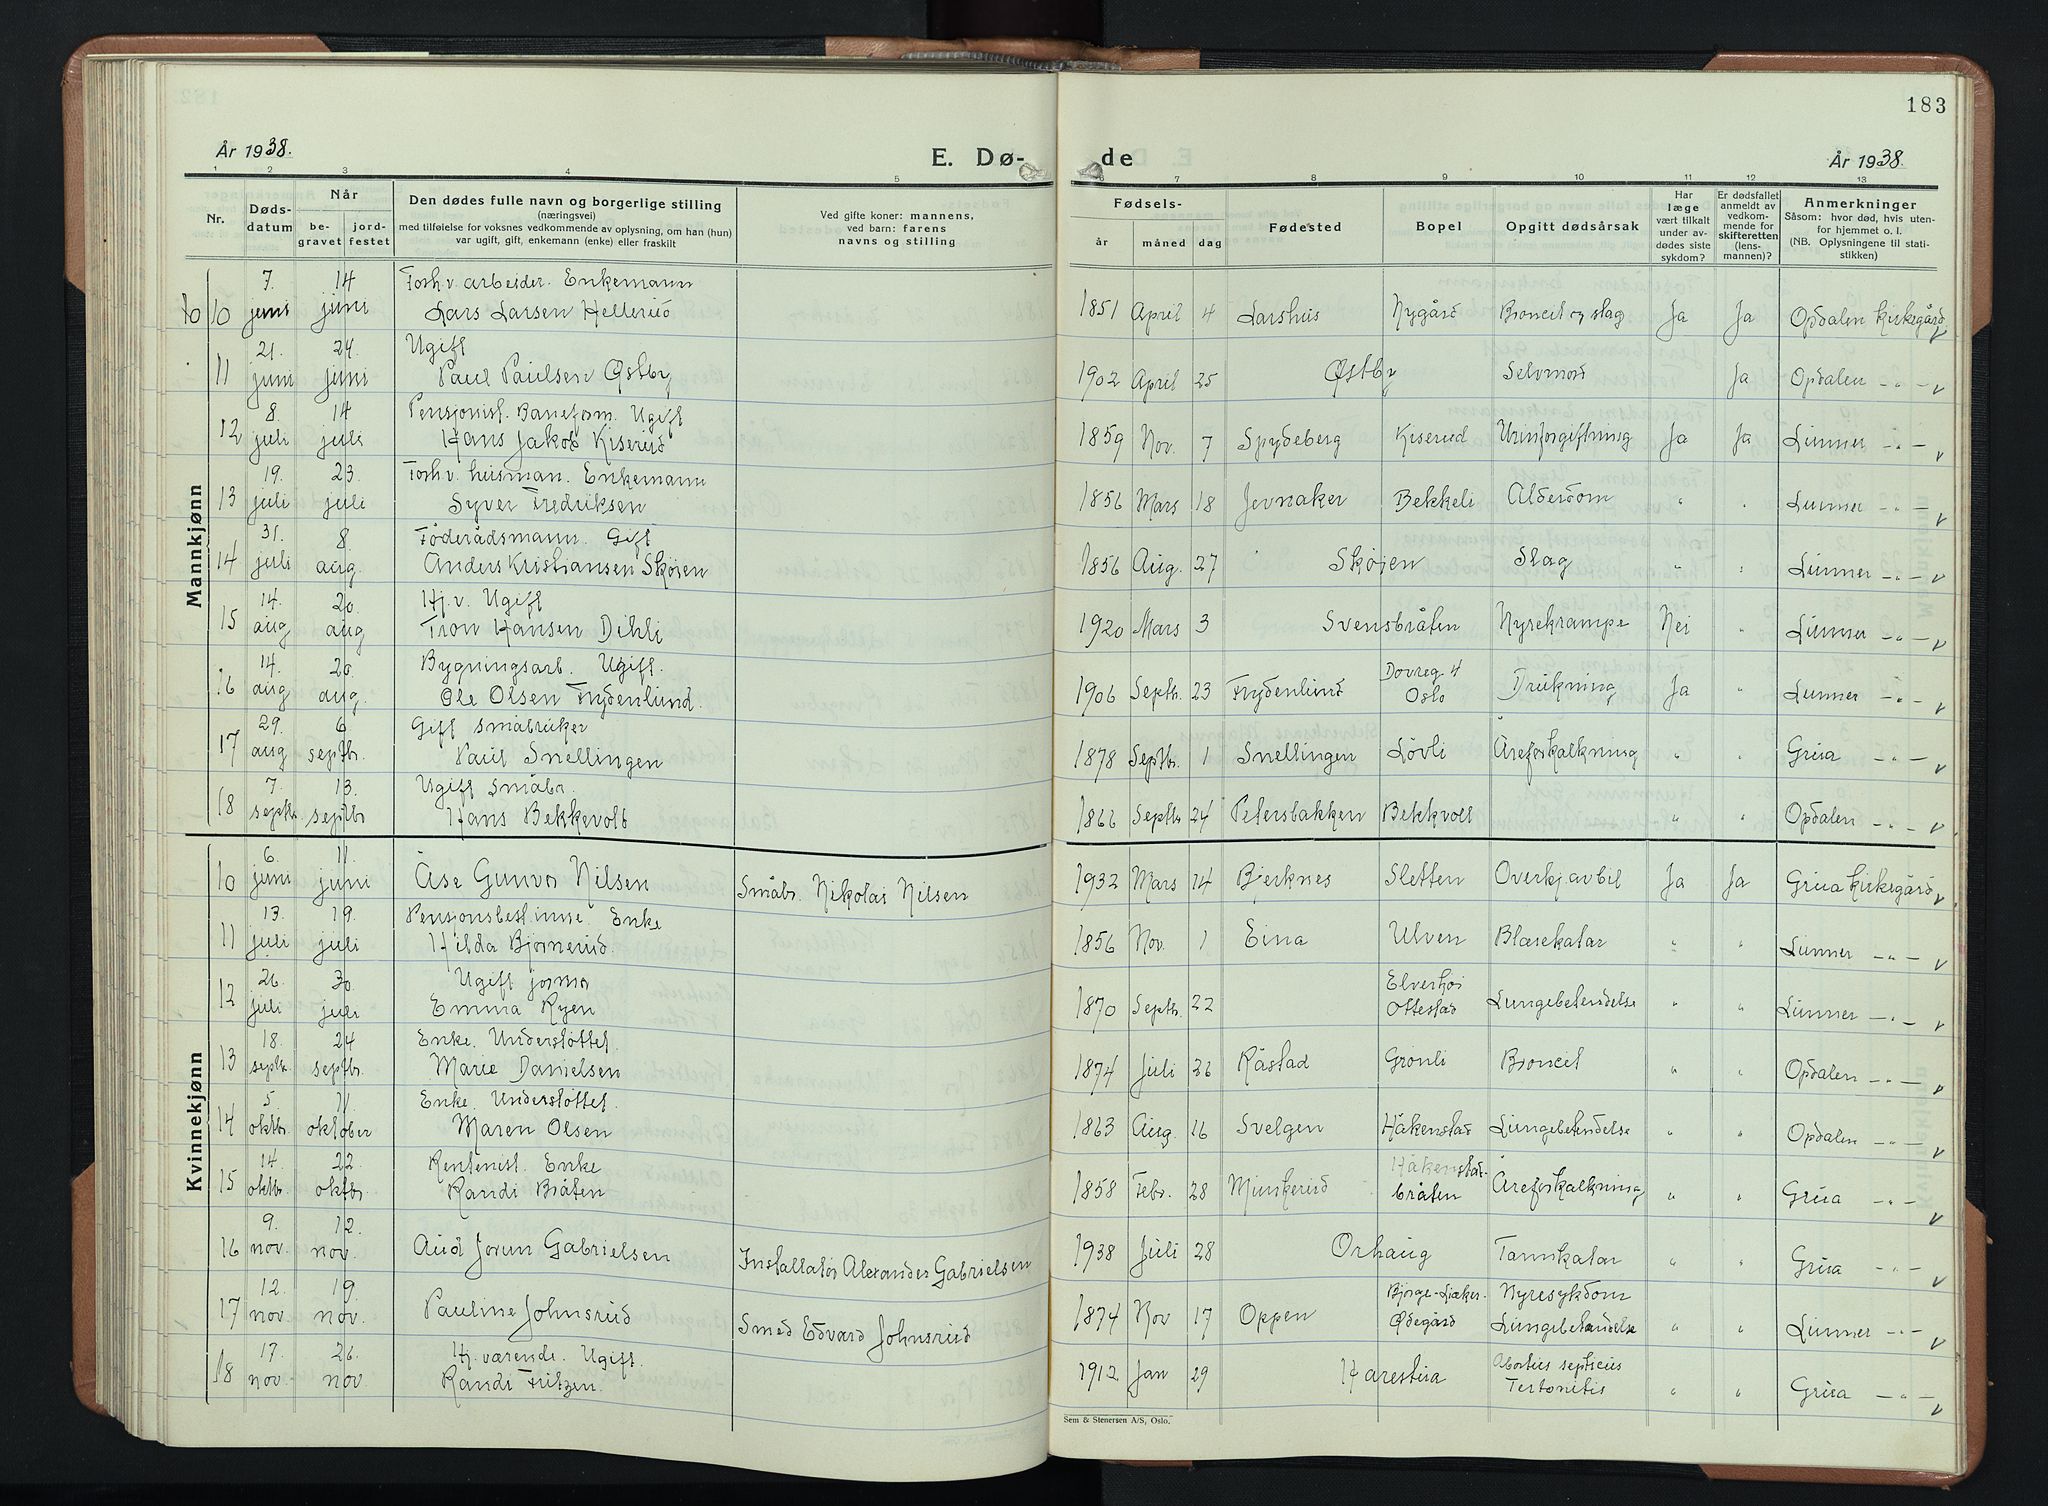 183
År 1938.
E. Dø- de
År 1938.
1 2 3 4 5 6 7 8 9 10 11 12 13
Nr.
Døds-
datum
Når
be-
gravet
jord-
festet
Den dødes fulle navn og borgerlige stilling
(næringsvei)
med tilføielse for voksnes vedkommende av oplysning, om han (hun)
var ugift, gift, enkemann (enke) eller fraskilt
Ved gifte koner: mannens,
ved barn: farens
navns og stilling
Fødsels-
år måned dag
Fødested
Bopel
Opgitt dødsårsak
Har
læge
vært tilkalt
under av-
dødes siste
sykdom?
Er dødsfallet
anmeldt av
vedkom-
mende for
skifteretten
(lens-
mannen)?
Anmerkninger
Såsom: hvor død, hvis uten-
for hjemmet o. l.
(NB. Oplysningene til stati-
stikken)
Mannkjønn
7. 14 Forh.v. arbeider. Enkemann
10 juni juni Lars Larsen Hellerud 1851 April 4 Larshus Nygård Broncit og slag Ja Ja Opdalen Kirkegård
21. 24. Ugift
11 juni juni Paul Paulsen Østby 1902 April 25 Østby Selvmord Ja Opdalen -"-
8. 14 Pensjonist. Baneform. Ugift
12 juli juli Hans Jakob Kiserud 1859 Nov. 7 Spydeberg Kiserud Urinforgiftning Ja Ja Lunner -"-
19. 23. Forh.v. husman. Enkemann
13 juli juli Syver Fredriksen 1856 Mars 18 Jevnaker Bekkeli Alderdom " " Lunner -"-
31. 8. Föderådsmann. Gift
14 juli aug. Anders Kristiansen Skøien 1856 Aug. 27 Skøien Slag " " Lunner -"-
14. 20. Hj.v. Ugift
15 aug aug Tron Hansen Dihli 1920 Mars 3 Svensbråten Nyrekrampe Nei " Lunner -"-
14. 20. Bygningsarb. Ugift. Dovreg. 4
16 aug aug. Ole Olsen Frydenlund. 1906 Septb. 23 Frydenlund Oslo Drukning Ja " Lunner -"-
29. 6 Gift småbruker
17 aug septb. Paul Snellingen 1878 Septbr. 1 Snellingen Lövli Åreforkalkning " " Grua -"-
7. 13. Ugift Småbr.
18 septb septb Hans Bekkevolt 1866 Septb 24 Petersbakken Bekkvolt " " Opdalen -"-
Kvinnekjønn
6. 11.
10 juni juni Åse Gunvor Nilsen Småbr. Nikolai Nilsen 1932 Mars 14 Bjerknes Sletten Overkj. av bil Ja Ja Grua Kirkegård
13. 19. Enke
11 juli juli Hilda Bjørnerud. 1856 Nov. 1 Eina Ulven Blærekatar " " Lunner -"-
26. 30. Ugift jormor Elverhöi
12 juli juli Emma Ryen 1870 Septb. 22 Ottestad Lungebetendelse " " Lunner -"-
18. 24 Enke. Understöttet.
13 septb. septbr. Marie Danielsen 1874 Juli 26 Råstad Grönli Broncit " " Opdalen -"-
5. 11. Enke. Understöttet.
14 oktbr. oktober Maren Olsen 1863 Aug. 16 Svelgen Håkenstad Lungebetendelse " " Opdalen -"-
14. 22. Rentenist. Enke Håkenstad-
15 oktbr. oktbr. Randi Bråten 1858 Febr. 28 Munkerud bråten Åreforkalkning " " Grua -"-
9. 12.
16 nov. nov. Aud Jorun Gabrielsen Installatör Alexander Gabrielsen 1938 Juli 28 Orhaug Tarmkatar " " Grua -"-
12. 19. Nyresykdom
17 nov. nov. Pauline Johnsrud Smed Edvard Johnsrud 1874 Nov 17 Oppen Ødegård Lungebetendelse " " Lunner -"-
17. 26. Hj. værende. Ugift. Abortus septicus
18 nov. nov. Randi Fritzen. 1912 Jan 29 Harestua " " Grua -"-
Sem & Stenersen A/S, Oslo.